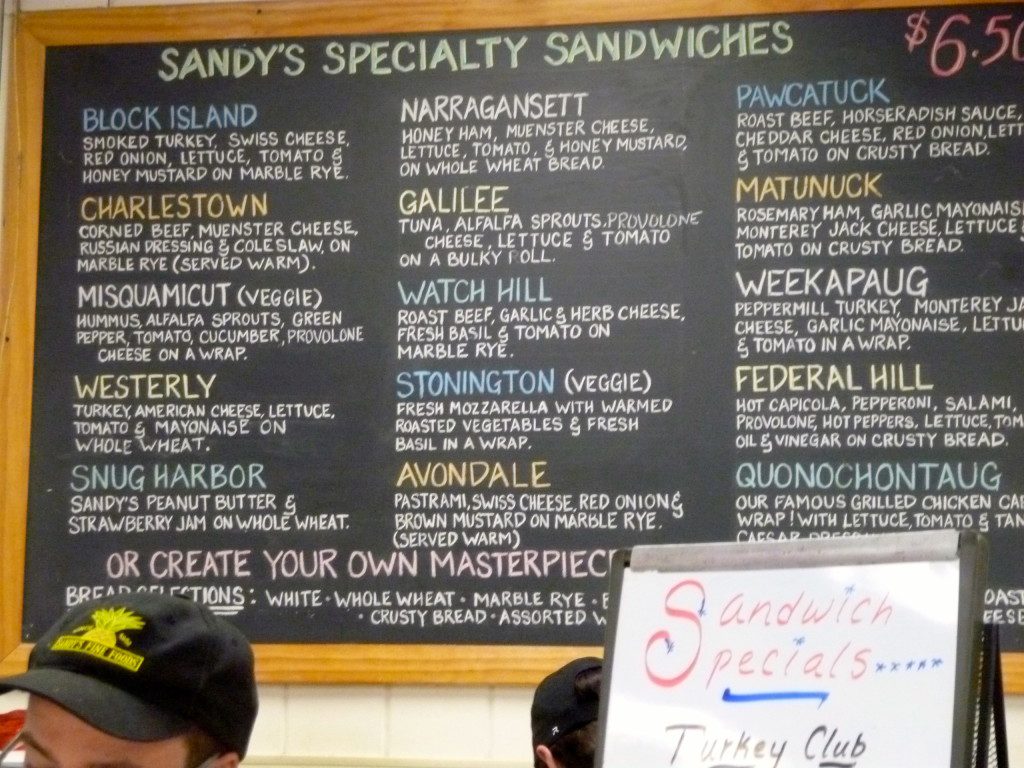 SANDY'S SPECIALTY SANDWICHES
$6.50
BLOCK ISLAND
SMOKED TURKEY, SWISS CHEESE,
RED ONION, LETTUCE, TOMATO &
HONEY MUSTARD ON MARBLE RYE.
CHARLESTOWN
CORNED BEEF, MUENSTER CHEESE,
RUSSIAN DRESSING & COLESLAW, ON
MARBLE RYE (SERVED WARM).
MISQUAMICUT (VEGGIE)
HUMMUS, ALFALFA SPROUTS, GREEN
PEPPER, TOMATO, CUCUMBER, PROVOLONE
CHEESE ON A WRAP.
WESTERLY
TURKEY, AMERICAN CHEESE, LETTUCE,
TOMATO & MAYONAISE ON
WHOLE WHEAT.
SNUG HARBOR
SANDY'S PEANUT BUTTER &
STRAWBERRY JAM ON WHOLE WHEAT.
NARRAGANSETT
HONEY HAM, MUENSTER CHEESE,
LETTUCE, TOMATO, & HONEY MUSTARD,
ON WHOLE WHEAT BREAD.
GALILEE
TUNA, ALFALFA SPROUTS, PROVOLONE
CHEESE, LETTUCE & TOMATO
ON A BULKY ROLL.
WATCH HILL
ROAST BEEF, GARLIC & HERB CHEESE,
FRESH BASIL & TOMATO ON
MARBLE RYE.
STONINGTON (VEGGIE)
FRESH MOZZARELLA WITH WARMED
ROASTED VEGETABLES & FRESH
BASIL IN A WRAP.
AVONDALE
PASTRAMI, SWISS CHEESE, RED ONION &
BROWN MUSTARD ON MARBLE RYE.
(SERVED WARM)
PAWCATUCK
ROAST BEEF, HORSERADISH SAUCE,
CHEDDAR CHEESE, RED ONION, LETT
& TOMATO ON CRUSTY BREAD.
MATUNUCK
ROSEMARY HAM, GARLIC MAYONAIS
MONTEREY JACK CHEESE, LETTUCE &
TOMATO ON CRUSTY BREAD.
WEEKAPAUG
PEPPERMILL TURKEY, MONTEREY JA
CHEESE, GARLIC MAYONAISE, LETTU
& TOMATO IN A WRAP.
FEDERAL HILL
HOT CAPICOLA, PEPPERONI, SALAMI,
PROVOLONE, HOT PEPPERS, LETTUCE, TOM
OIL & VINEGAR ON CRUSTY BREAD.
QUONOCHONTAUG
OUR FAMOUS GRILLED CHICKEN CAE
WRAP! WITH LETTUCE, TOMATO & TAN
CAESAR
OR CREATE YOUR OWN MASTERPIEC
BREAD SELECTIONS: WHITE · WHOLE WHEAT · MARBLE RYE ·
· CRUSTY BREAD · ASSORTED W
SANDY'S FINE FOODS
Sandwich
Specials.....
Turkey Club